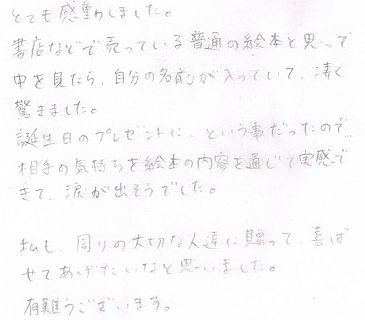 とても感動しました。
書店などで売っている普通の絵本と思って
中を見たら、自分の名前が入っていて、凄く
驚きました。
誕生日のプレゼントに、という事だったので、
相手の気持ちを絵本の内容を通じて実感で
きて、涙が出そうでした。
私も、周りの大切な人達に贈って、喜ば
せてあげたいなと思いました。
有難うございます。